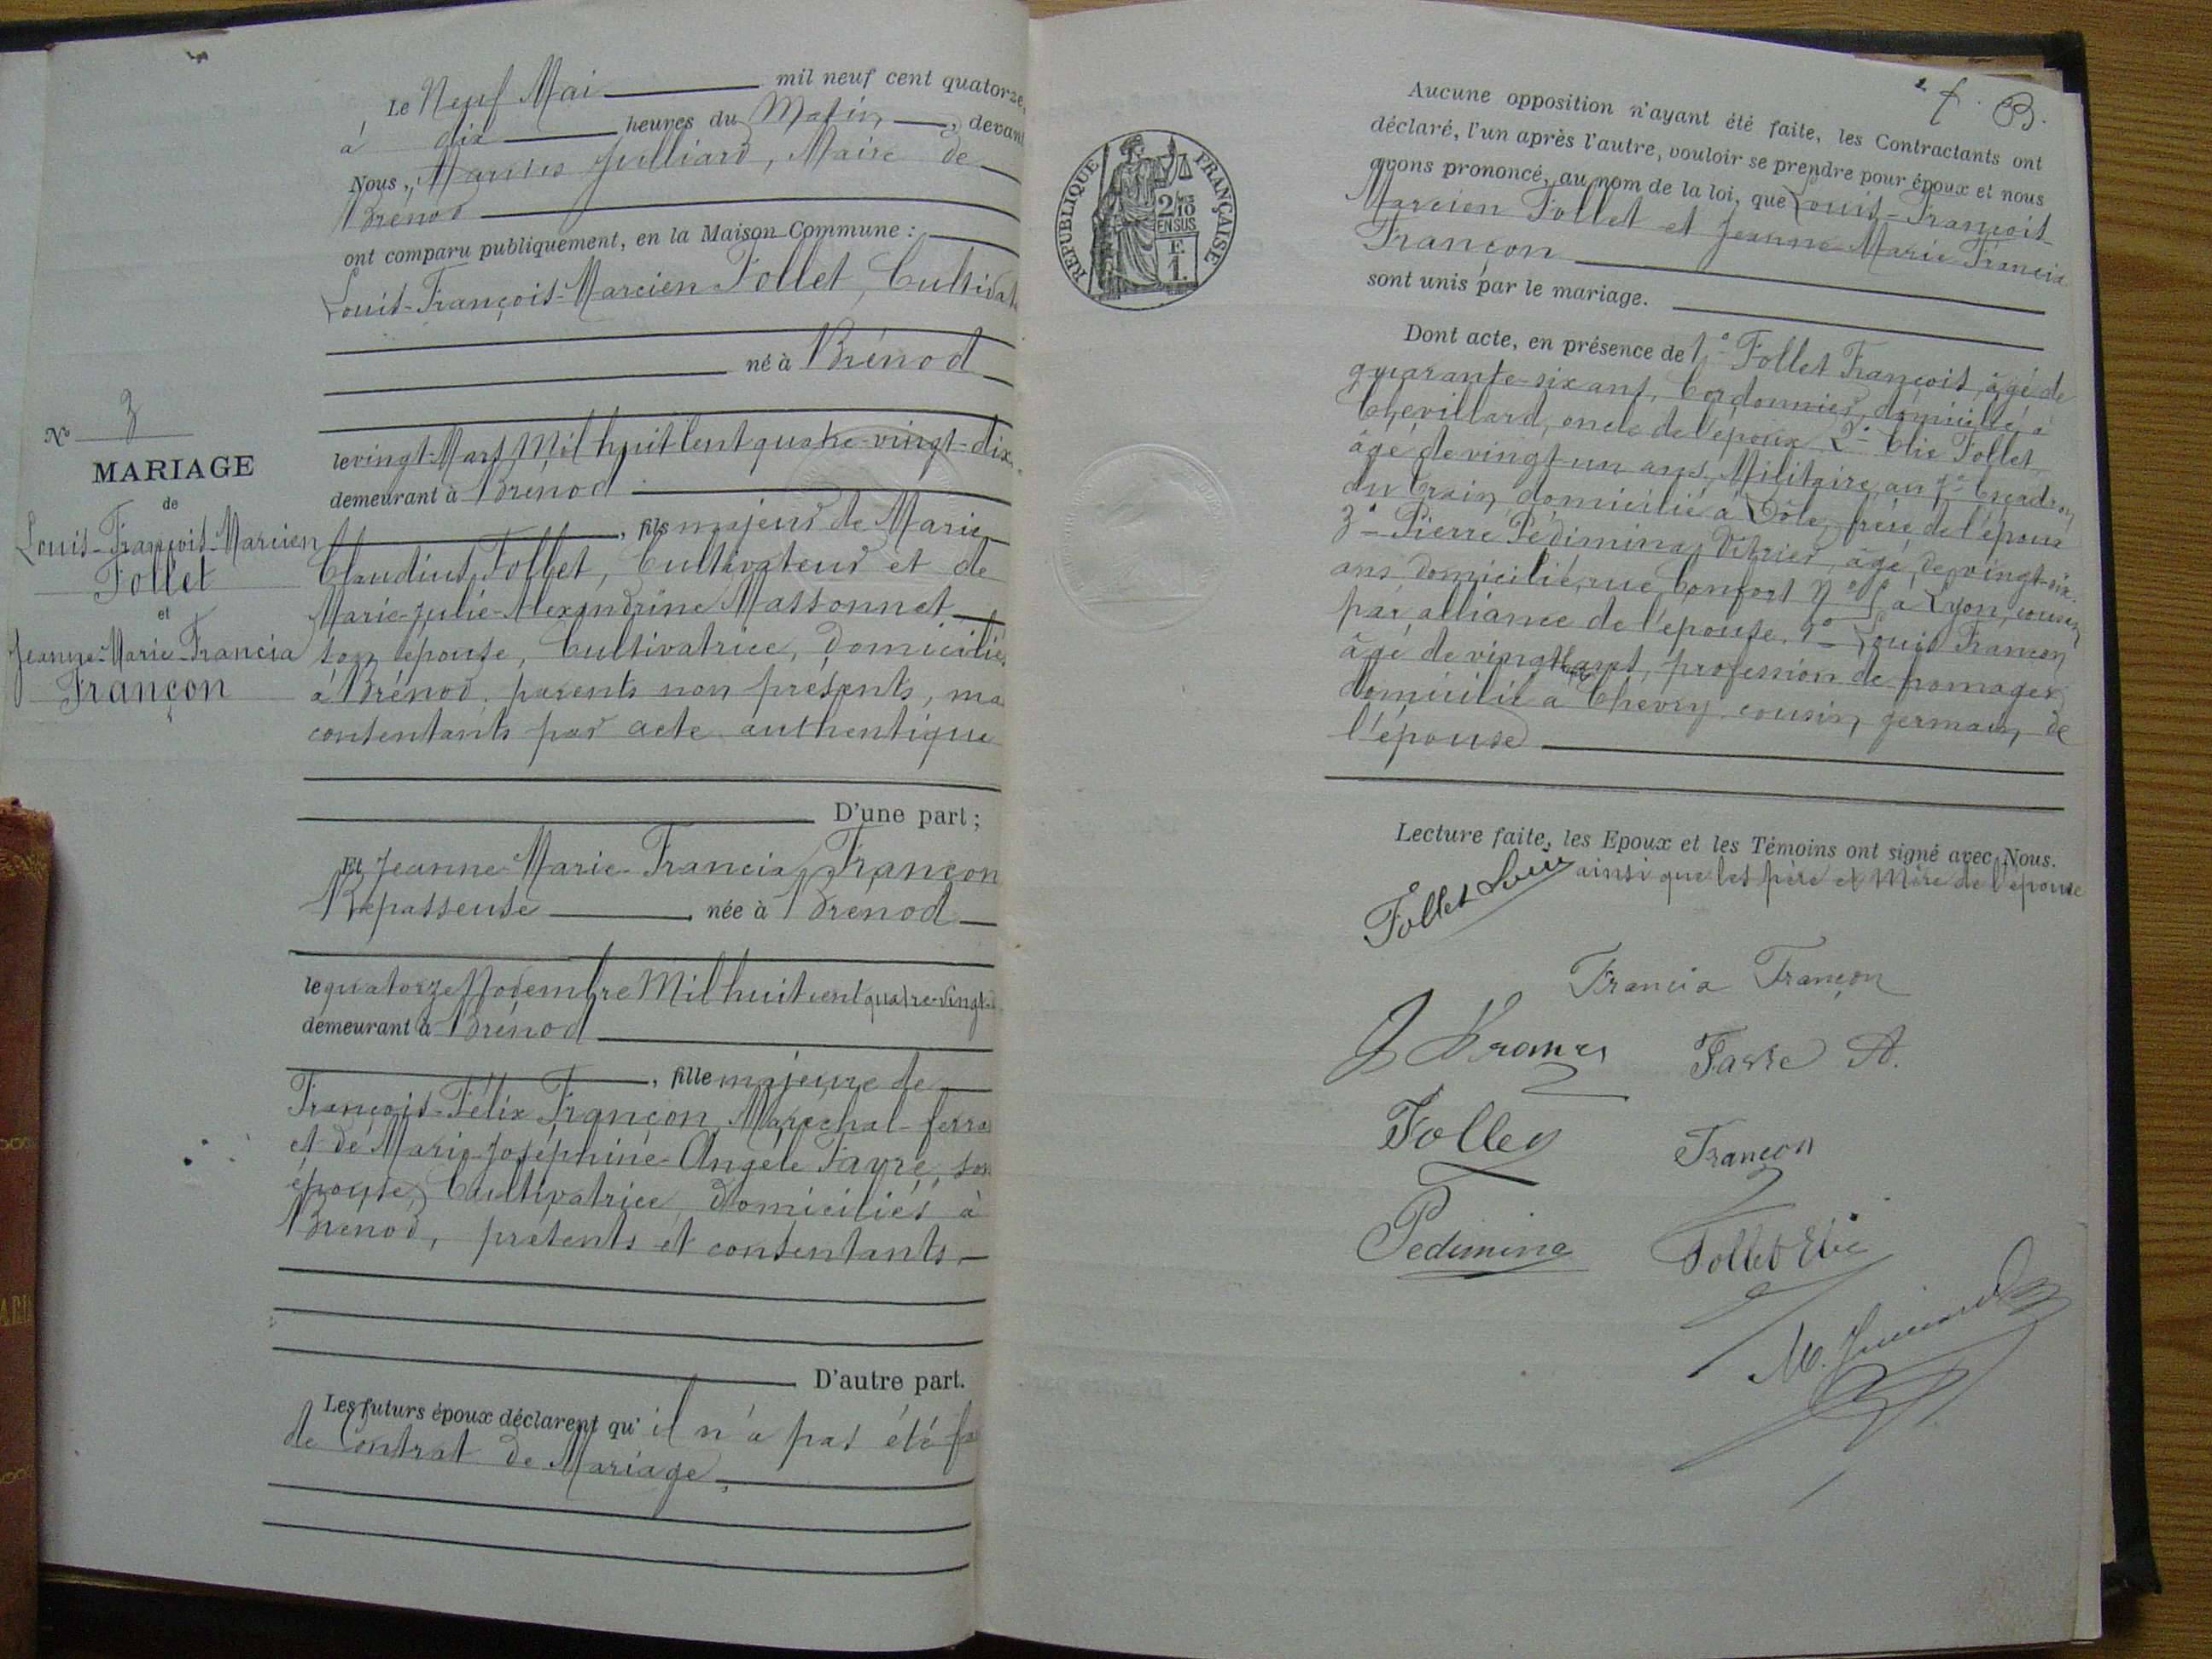 Le Neuf Mai mil neuf cent quatorze,
à dix heures du Matin, devant
Nous, Marius Julliard, Maire de
Brénod
ont comparu publiquement, en la Maison Commune :
Louis-François-Marcien Follet, Cultivat
né à Brénod
le vingt Mars Mil huit cent quatre-vingt-dix,
demeurant à Brénod
, fils majeur de Marie
Claudius Follet, Cultivateur et de
Marie-Julie-Alexandrine Massonnet
son épouse, Cultivatrice, domiciliés
à Brénod, parents non présents, ma
consentants par acte authentique
D'une part ;
Et Jeanne-Marie-Francia Françon
Repasseuse née à Brénod
le quatorze Novembre Mil huit cent quatre-vingt
demeurant à Brénod
, fille majeure de
François-Félix Françon, Maréchal-ferra
et de Marie-Joséphine-Angèle Favre, son
épouse, Cultivatrice, domiciliés à
Brénod, présents et consentants
D'autre part.
Les futurs époux déclarent qu'il n'a pas été fa
de Contrat de Mariage,
No 3
MARIAGE
de
Louis-François-Marcien
Follet
et
Jeanne-Marie-Francia
Françon
REPUBLIQUE FRANÇAISE
2/10
EN SUS
F.
1.
Aucune opposition n'ayant été faite, les Contractants ont
déclaré, l'un après l'autre, vouloir se prendre pour époux et nous
avons prononcé, au nom de la loi, que Louis-François-
Marcien Follet et Jeanne-Marie Francia
Françon
sont unis par le mariage.
Dont acte, en présence de 1° Follet François, âgé de
quarante-six ans, Cordonnier, domicilié à
Chevillard, oncle de l'époux 2° Elie Follet
âgé de vingt-un ans, Militaire au Escadron
du Train, domicilié à Dôle, frère de l'époux
3° Pierre Pédimina, Vitrier, âgé de vingt-six
ans domicilié, rue Confort à Lyon, cousin
par alliance de l'épouse. Louis Françon
âgé de vingt ans, profession de fromager
domicilié à Chevry cousin germain, de
l'épouse
Lecture faite, les Epoux et les Témoins ont signé avec Nous.
ainsi que les père et Mère de l'épouse
Follet Louis
Francia Françon
Favre A.
Follet
Françon
Pedimina
Follet Elie
M. Julliard